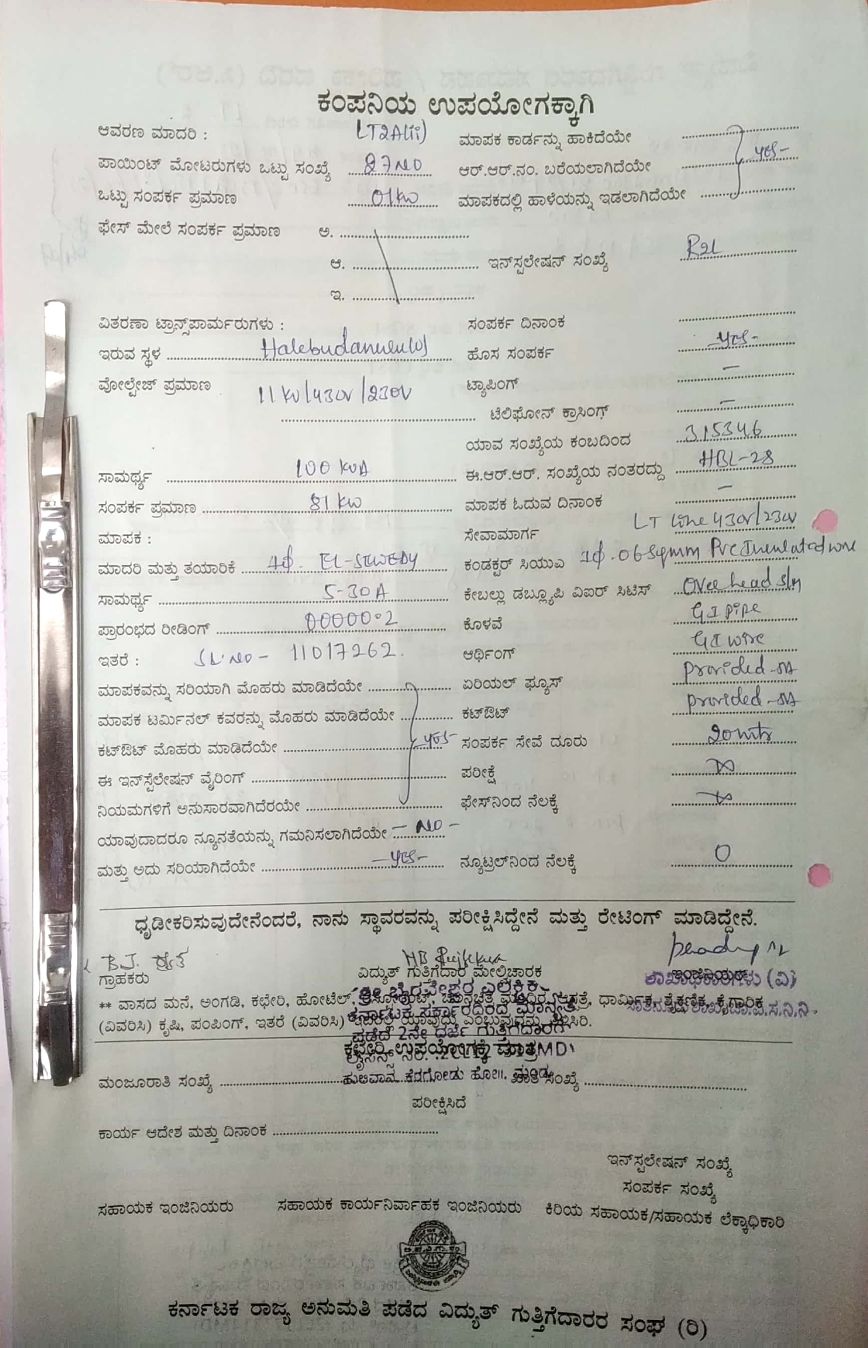 ಕಂಪನಿಯ ಉಪಯೋಗಕ್ಕಾಗಿ
ಆವರಣ ಮಾದರಿ : LT2A(ii) ಮಾಪಕ ಕಾರ್ಡನ್ನು ಹಾಕಿದೆಯೇ
ಪಾಯಿಂಟ್ ಮೋಟರುಗಳು ಒಟ್ಟು ಸಂಖ್ಯೆ 07 NO ಆರ್.ಆರ್.ನಂ. ಬರೆಯಲಾಗಿದೆಯೇ yes-
ಒಟ್ಟು ಸಂಪರ್ಕ ಪ್ರಮಾಣ 01 kw ಮಾಪಕದಲ್ಲಿ ಹಾಳೆಯನ್ನು ಇಡಲಾಗಿದೆಯೇ
ಫೇಸ್ ಮೇಲೆ ಸಂಪರ್ಕ ಪ್ರಮಾಣ ಅ.
ಆ. ಇನ್‌ಸ್ಪಲೇಷನ್ ಸಂಖ್ಯೆ
ಇ.
ವಿತರಣಾ ಟ್ರಾನ್ಸ್‌ಪಾರ್ಮರುಗಳು : ಸಂಪರ್ಕ ದಿನಾಂಕ
ಇರುವ ಸ್ಥಳ ಹೊಸ ಸಂಪರ್ಕ yes-
ವೋಲ್ಟೇಜ್ ಪ್ರಮಾಣ 11 kv/430v/230v ಟ್ಯಾಪಿಂಗ್ –
ಟೆಲಿಫೋನ್ ಕ್ರಾಸಿಂಗ್ –
ಯಾವ ಸಂಖ್ಯೆಯ ಕಂಬದಿಂದ 315346
ಸಾಮರ್ಥ್ಯ 100 KVA ಈ.ಆರ್.ಆರ್. ಸಂಖ್ಯೆಯ ನಂತರದ್ದು HBL-28
ಸಂಪರ್ಕ ಪ್ರಮಾಣ 81 kw ಮಾಪಕ ಓದುವ ದಿನಾಂಕ –
ಮಾಪಕ : ಸೇವಾಮಾರ್ಗ LT Line 430v/230v
ಮಾದರಿ ಮತ್ತು ತಯಾರಿಕೆ 1ϕ. EL-SEWEDY ಕಂಡಕ್ಟರ್ ಸಿಯುಎ 1ϕ. 06 sqmm PVC Insulated wire
ಸಾಮರ್ಥ್ಯ 5-30A ಕೇಬಲ್ಲು ಡಬ್ಲ್ಯೂಪಿ ವಿಐರ್ ಸಿಟಿಸ್ Over head
ಪ್ರಾರಂಭದ ರೀಡಿಂಗ್ 00000.2 ಕೊಳವೆ GI pipe
ಇತರೆ : SL.NO- 11017262. ಆರ್ಥಿಂಗ್ GI wire
ಮಾಪಕವನ್ನು ಸರಿಯಾಗಿ ಮೊಹರು ಮಾಡಿದೆಯೇ ಏರಿಯಲ್ ಫ್ಯೂಸ್ provided
ಮಾಪಕ ಟರ್ಮಿನಲ್ ಕವರನ್ನು ಮೊಹರು ಮಾಡಿದೆಯೇ ಕಟ್‌ಔಟ್ provided
ಕಟ್‌ಔಟ್ ಮೊಹರು ಮಾಡಿದೆಯೇ yes- ಸಂಪರ್ಕ ಸೇವೆ ದೂರು 20 mtr
ಈ ಇನ್‌ಸ್ಟೆಲೇಷನ್ ವೈರಿಂಗ್ ಪರೀಕ್ಷೆ
ನಿಯಮಗಳಿಗೆ ಅನುಸಾರವಾಗಿದೆರಯೇ ಫೇಸ್‌ನಿಂದ ನೆಲಕ್ಕೆ
ಯಾವುದಾದರೂ ನ್ಯೂನತೆಯನ್ನು ಗಮನಿಸಲಾಗಿದೆಯೇ – NO –
ಮತ್ತು ಅದು ಸರಿಯಾಗಿದೆಯೇ – yes – ನ್ಯೂಟ್ರಲ್‌ನಿಂದ ನೆಲಕ್ಕೆ 0
ಧೃಡೀಕರಿಸುವುದೇನೆಂದರೆ, ನಾನು ಸ್ಥಾವರವನ್ನು ಪರೀಕ್ಷಿಸಿದ್ದೇನೆ ಮತ್ತು ರೇಟಿಂಗ್ ಮಾಡಿದ್ದೇನೆ.
ಗ್ರಾಹಕರು ವಿದ್ಯುತ್ ಗುತಿಗೆದಾರ ಮೇಲಿಚಾರಕ ಇಂಜಿನಿಯರ್
ಶಾಖಾಧಿಕಾರಿಗಳು (ವಿ)
** ವಾಸದ ಮನೆ, ಅಂಗಡಿ, ಕಛೇರಿ, ಹೋಟೆಲ್, ಧಾರ್ಮಿಕ, ಶೈಕ್ಷಣಿಕ, ಕೈಗಾರಿಕ
(ವಿವರಿಸಿ) ಕೃಷಿ, ಪಂಪಿಂಗ್, ಇತರೆ (ವಿವರಿಸಿ)
ಕಛೇರಿ ಉಪಯೋಗಕ್ಕೆ ಮಾತ್ರ
ಮಂಜೂರಾತಿ ಸಂಖ್ಯೆ
ಪರೀಕ್ಷಿಸಿದೆ
ಕಾರ್ಯ ಆದೇಶ ಮತ್ತು ದಿನಾಂಕ
ಇನ್‌ಸ್ಪಲೇಷನ್ ಸಂಖ್ಯೆ
ಸಂಪರ್ಕ ಸಂಖ್ಯೆ
ಸಹಾಯಕ ಇಂಜಿನಿಯರು ಸಹಾಯಕ ಕಾರ್ಯನಿರ್ವಾಹಕ ಇಂಜಿನಿಯರು ಕಿರಿಯ ಸಹಾಯಕ/ಸಹಾಯಕ ಲೆಕ್ಕಾಧಿಕಾರಿ
ಕರ್ನಾಟಕ ರಾಜ್ಯ ಅನುಮತಿ ಪಡೆದ ವಿದ್ಯುತ್ ಗುತ್ತಿಗೆದಾರರ ಸಂಘ (ರಿ)